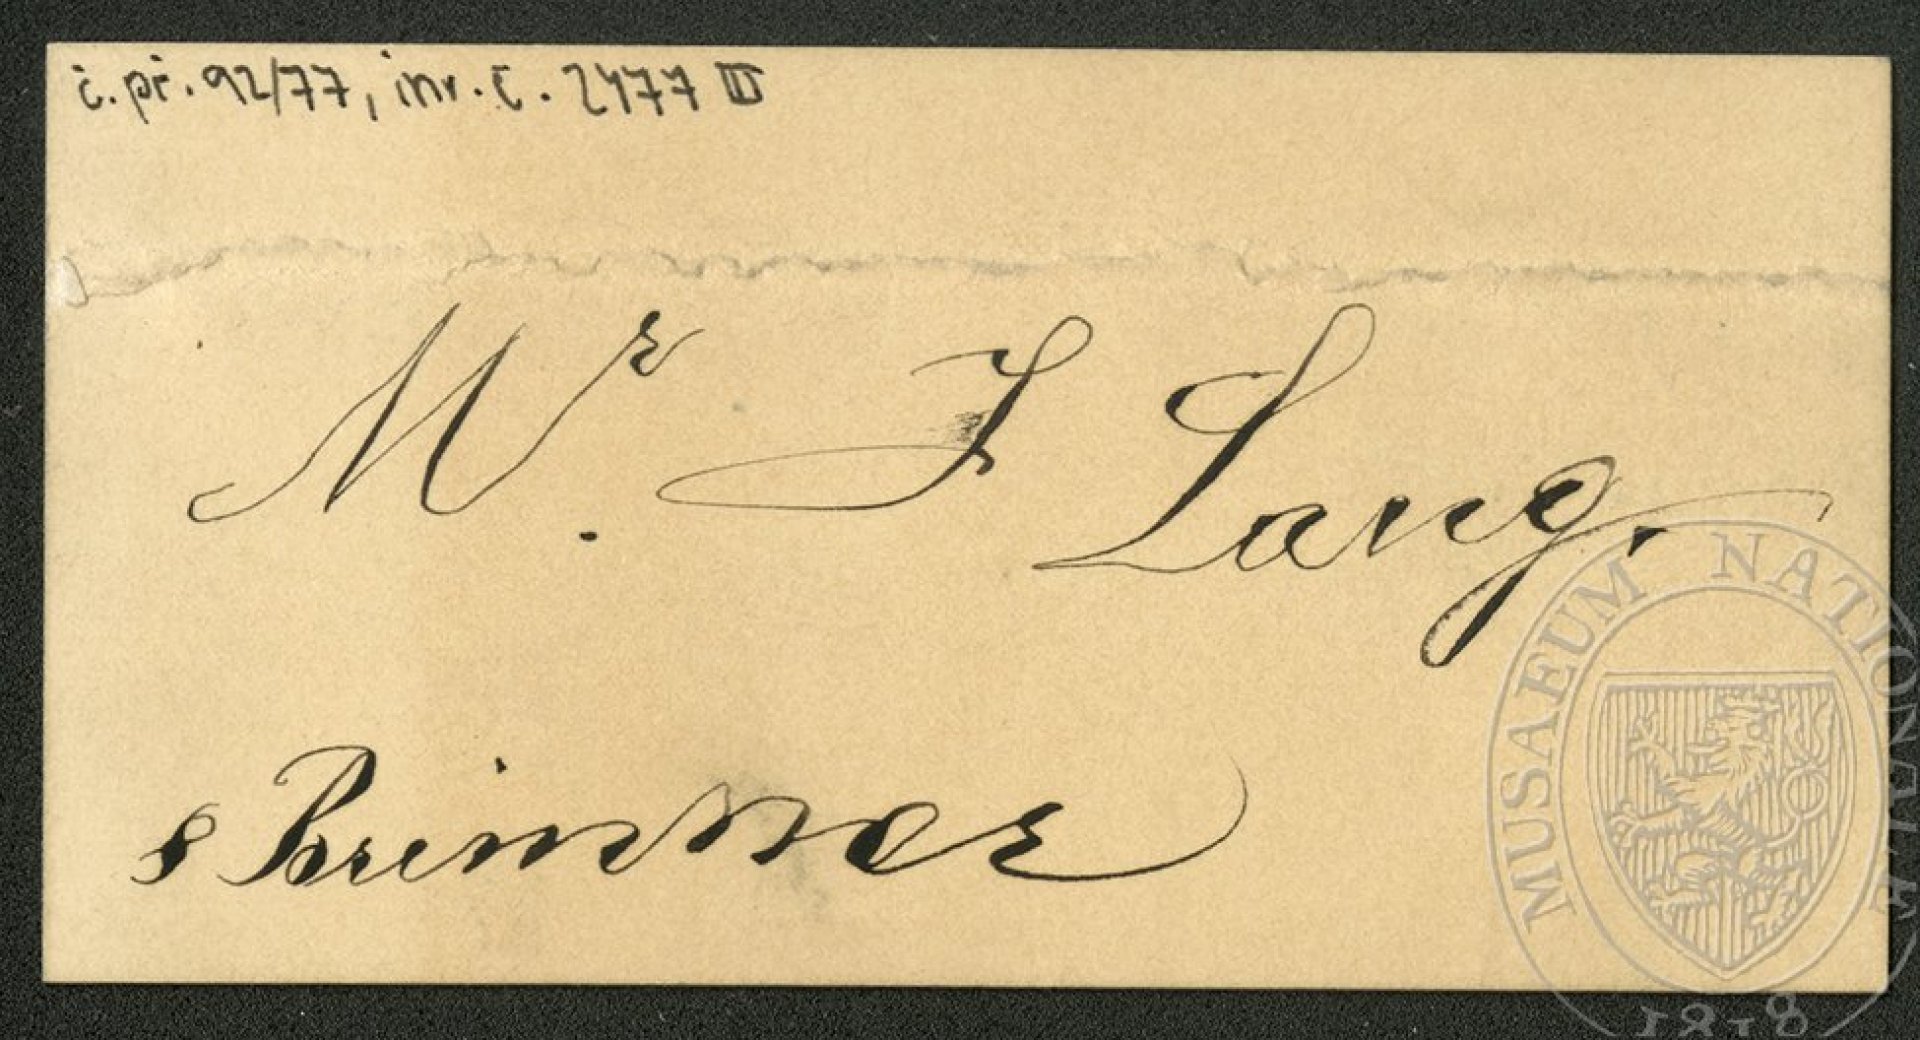 č. př. 92/77, inv. č. 2477 III
Mr. J Lang.
s Brimnor
MUSAEUM NATIONALE
1818